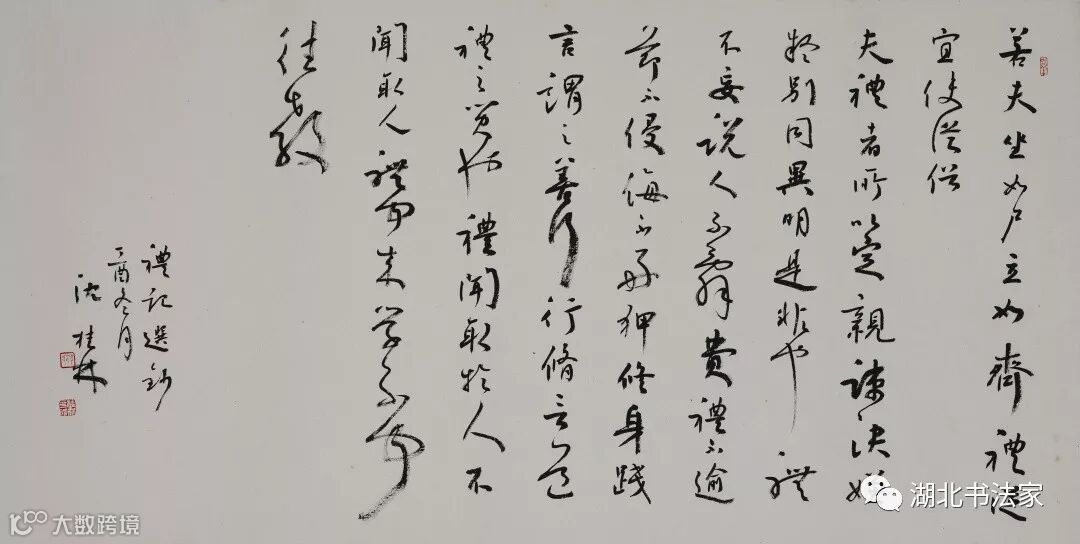 若夫坐如尸立如齊禮從
宜使從俗
夫禮者所以定親疎決嫌
疑別同異明是非也禮
不妄說人不辭費禮不逾
節不侵侮不好狎修身踐
言謂之善行行脩言道
禮之質也禮聞取於人不
聞取人禮聞来學不聞
往教
禮記選鈔
丁酉冬月
桂林
湖北书法家
大数跨境